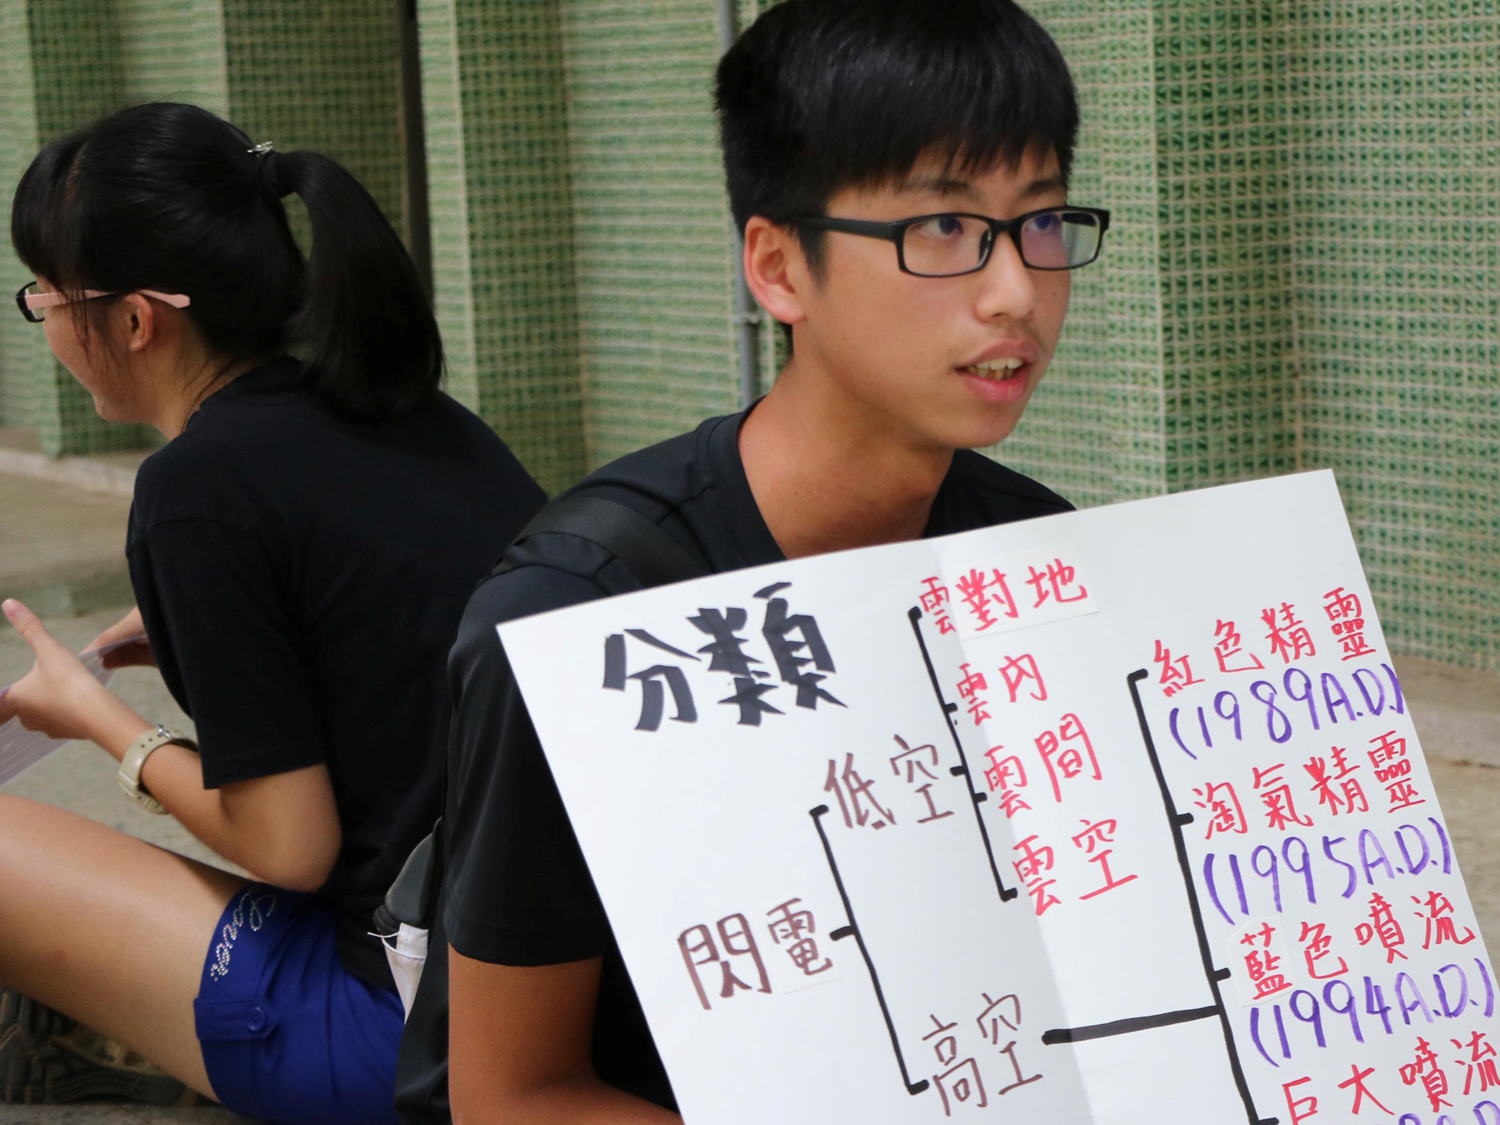 分類
閃電
低空
雲對地
雲內
雲間
雲空
高空
紅色精靈
(1989A.D.)
淘氣精靈
(1995A.D.)
藍色噴流
(1994A.D.)
巨大噴流